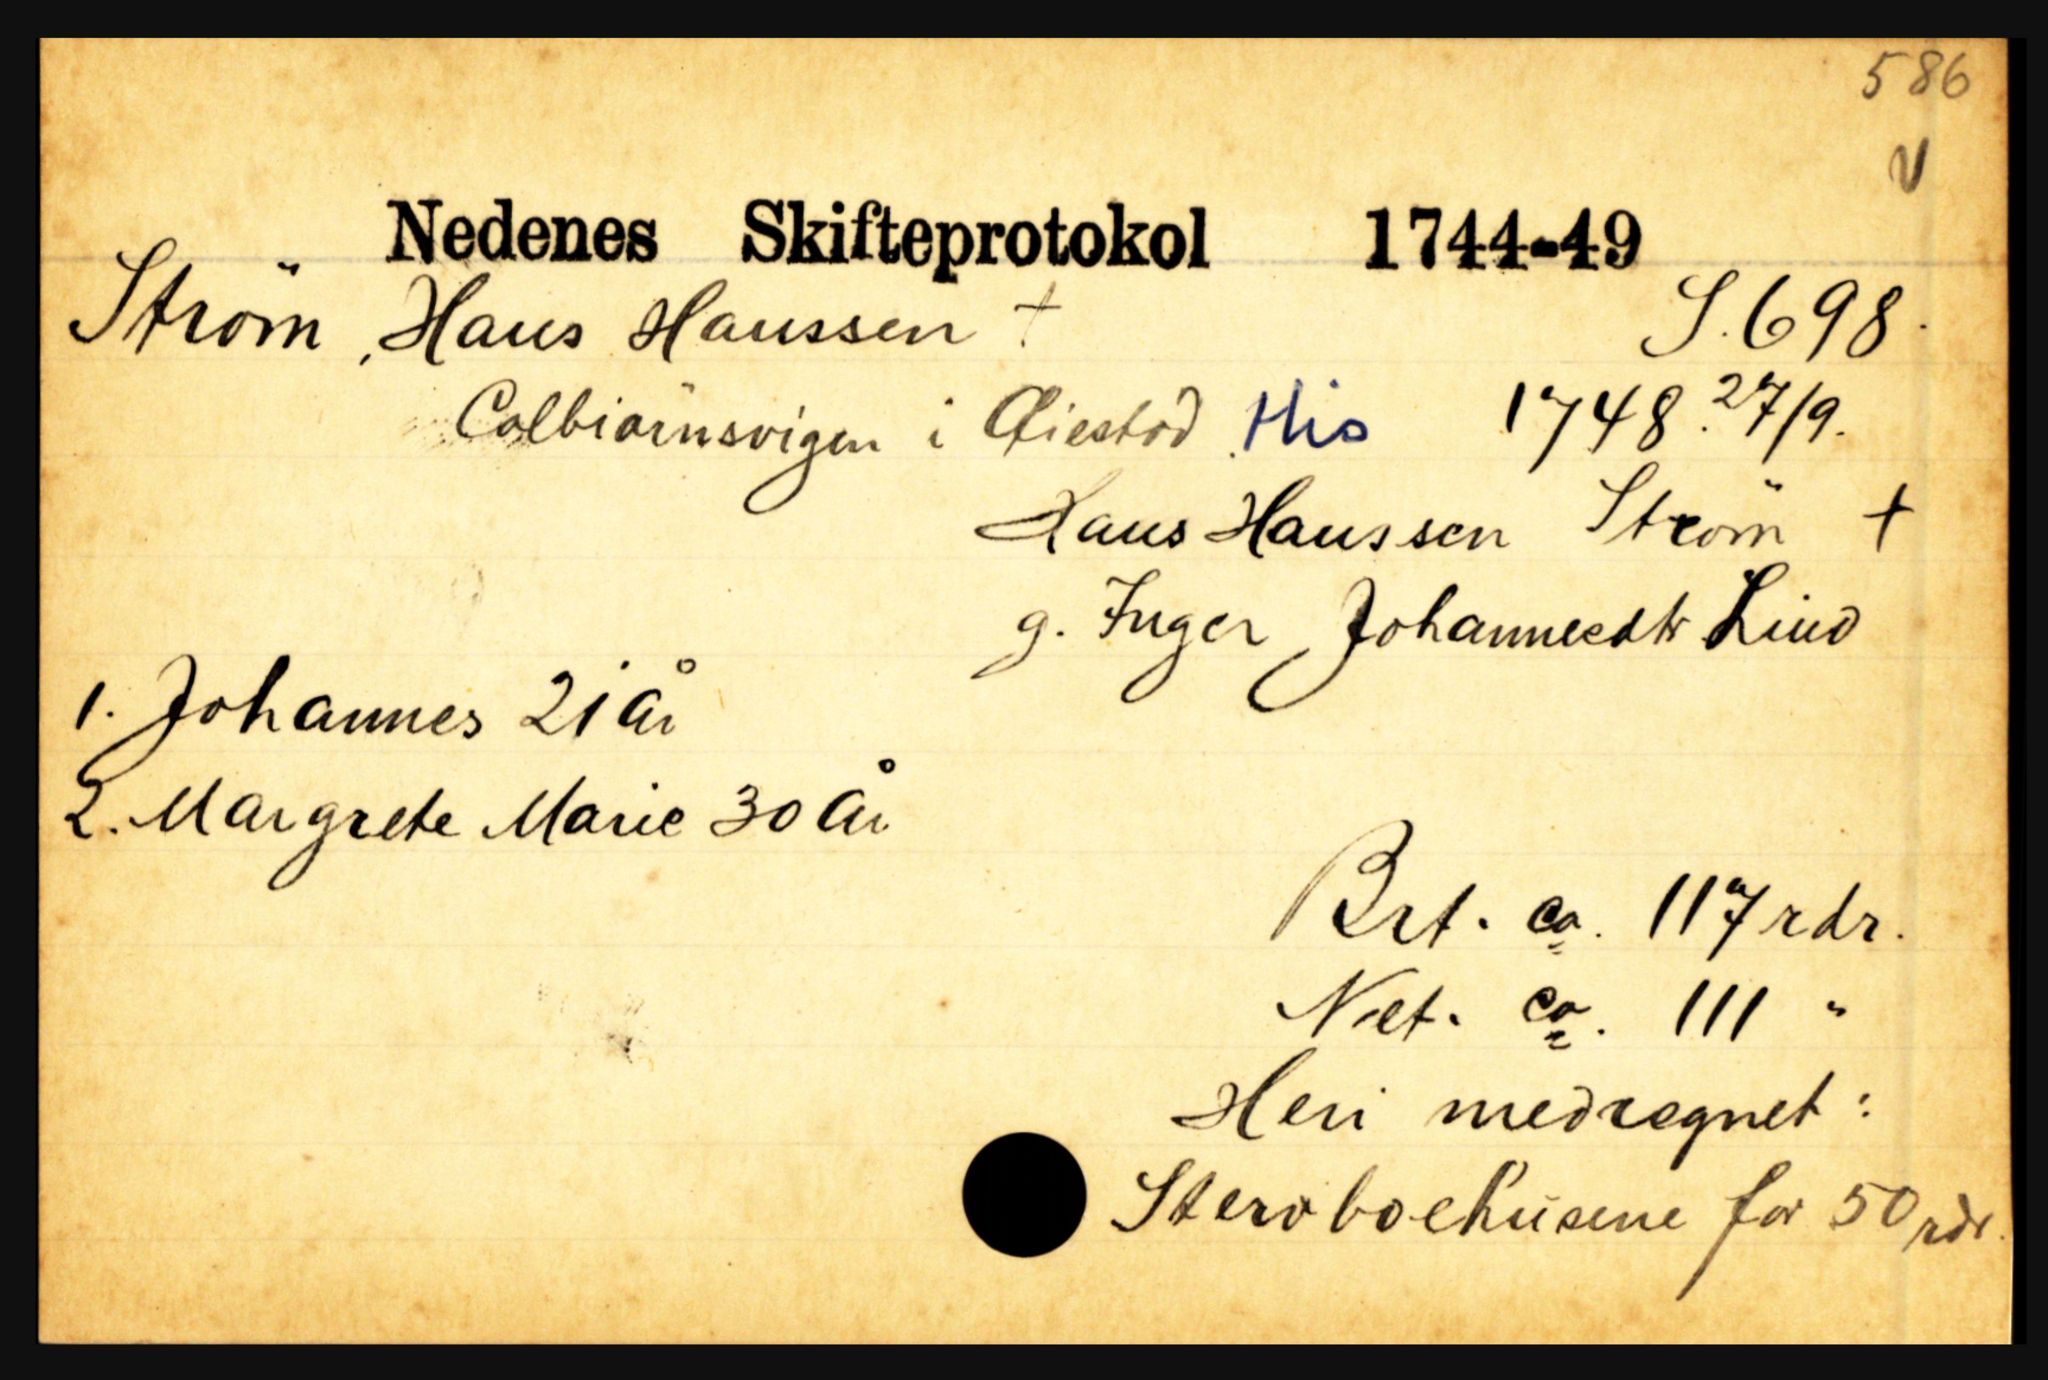 586
V
Nedenes Skifteprotokol 1744-49
Ström, Hans Hanssen † S. 698.
Colbiørnsvigen i Øiestad His 1748. 27/9.
Hans Hanssen Ström †
g. Inger Johannesdtr Lind
1. Johannes 21 år
2. Margrete Marie 30 år
Brt. ca. 117 rdr.
Net. ca. 111 "
Heri medregnet:
Stervboehusene for 50 rdr.